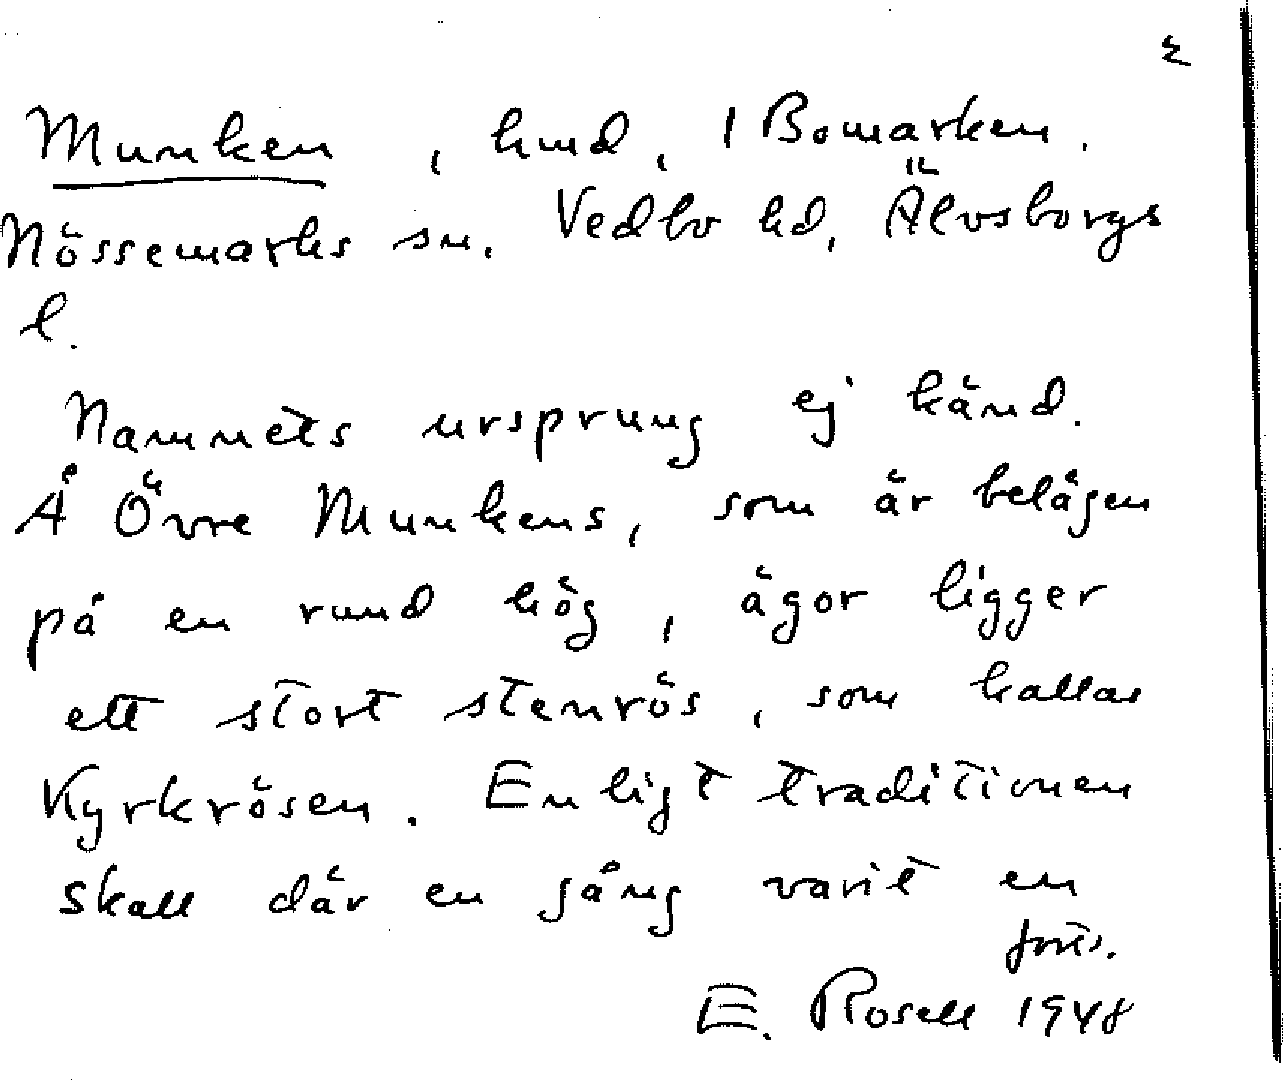 Munken, hmd, 1 Bomarken.
Nössemarks sn. Vedbo hd, Älvsborgs
l.
Namnets ursprung ej känd.
Å Övre Munkens, som är belägen
på en rund hög, ägor ligger
ett stort stenrös, som kallas
Kyrkrösen. Enligt traditionen
skall där en gång varit en
forts.
E. Rosell 1948